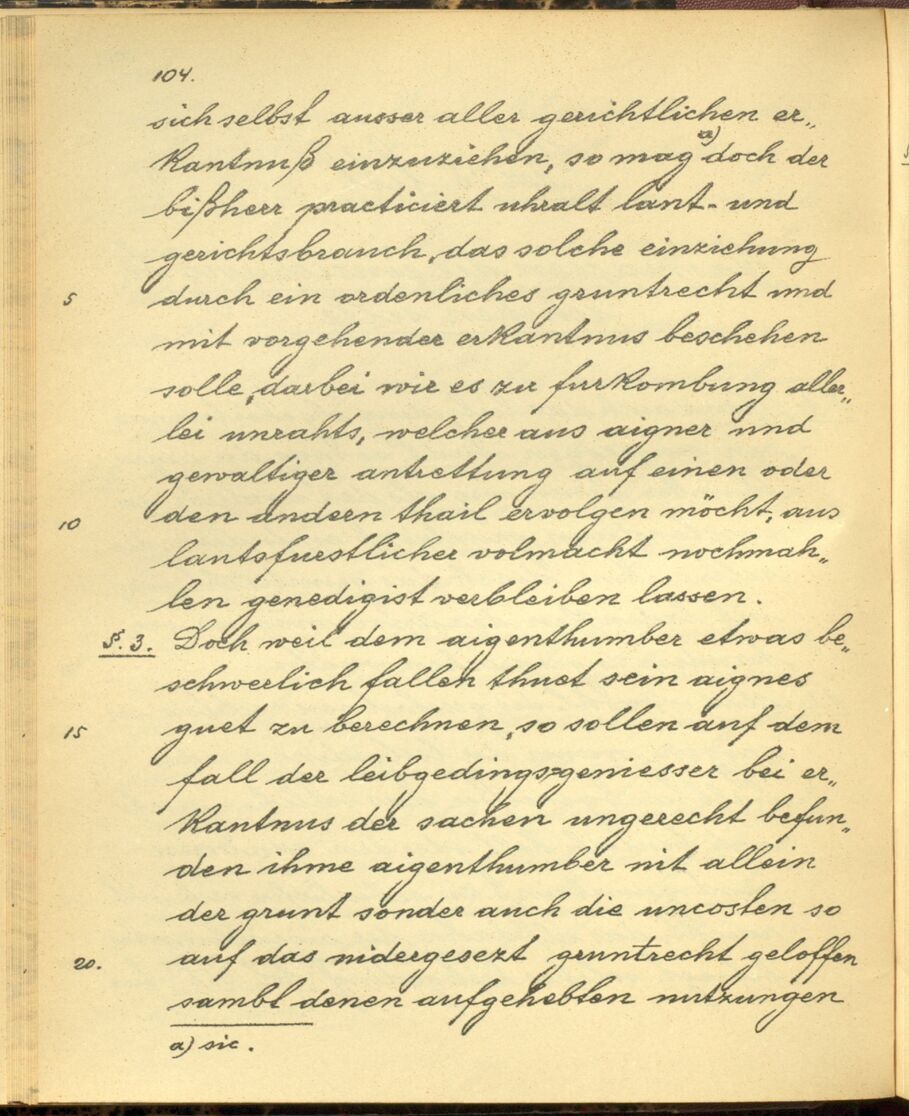 104.
sich selbst ausser aller gerichtlichen er„
kantnuß einzuziehen, so mag a) doch der
bißherr practiciert uhralt lant- und
gerichtsbrauch, das solche einziehung
5 durch ein ordenliches gruntrecht und
mit vorgehender erkantnus beschehen
solle, darbei wir es zu furkombung aller„
lei unrahts, welcher aus aigner und
gewaltiger antrettung auf einen oder
10 den andern thail ervolgen möcht, aus
lantsfurstlicher volmacht nochmah„
len genedigist verbleiben lassen.
§. 3. Doch weil dem aigenthumber etwas be„
schwerlich fallen thuet sein aignes
15 guet zu berechnen, so sollen auf dem
fall der leibgedingsgeniesser bei er„
kantnus der sachen ungerecht befun„
den ihme aigenthumber nit allein
der grunt sonder auch die uncosten so
20. auf das nidergesezt gruntrecht geloffen
sambt denen aufgehebten nutzungen
a) sic.